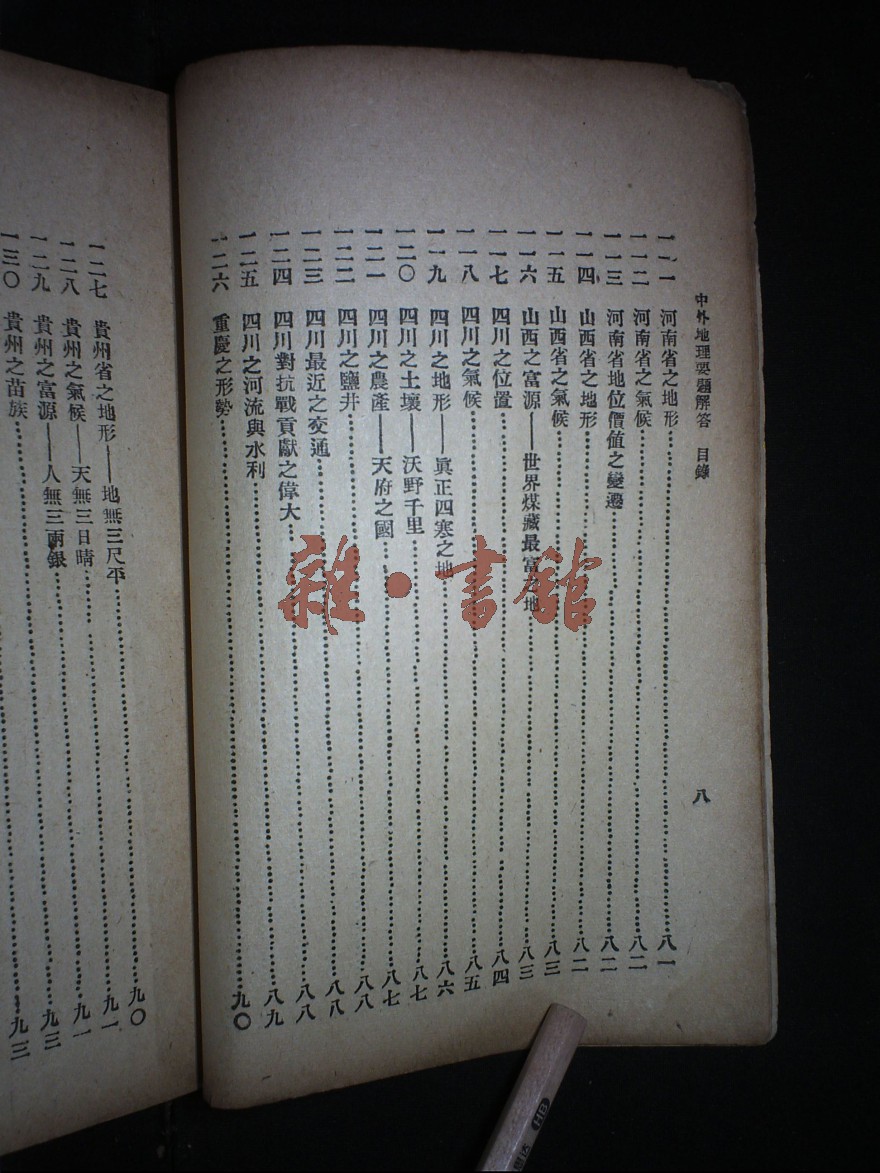 中外地理要題解答 目錄 八
一一一 河南省之地形……八一
一一二 河南省之氣候……八二
一一三 河南省地位價值之變遷……八二
一一四 山西省之地形……八二
一一五 山西省之氣候……八三
一一六 山西之富源——世界煤藏最富之地……八三
一一七 四川之位置……八四
一一八 四川之氣候……八五
一一九 四川之地形——眞正四寒之地……八六
一二〇 四川之土壤——沃野千里……八七
一二一 四川之農產——天府之國……八七
一二二 四川之鹽井……八八
一二三 四川最近之交通……八八
一二四 四川對抗戰貢獻之偉大……八八
一二五 四川之河流與水利……八九
一二六 重慶之形勢……九〇
一二七 貴州省之地形——地無三尺平……九〇
一二八 貴州之氣候——天無三日晴……九一
一二九 貴州之富源——人無三兩銀……九一
一三〇 貴州之苗族……九三
九三
雜·書館
HB